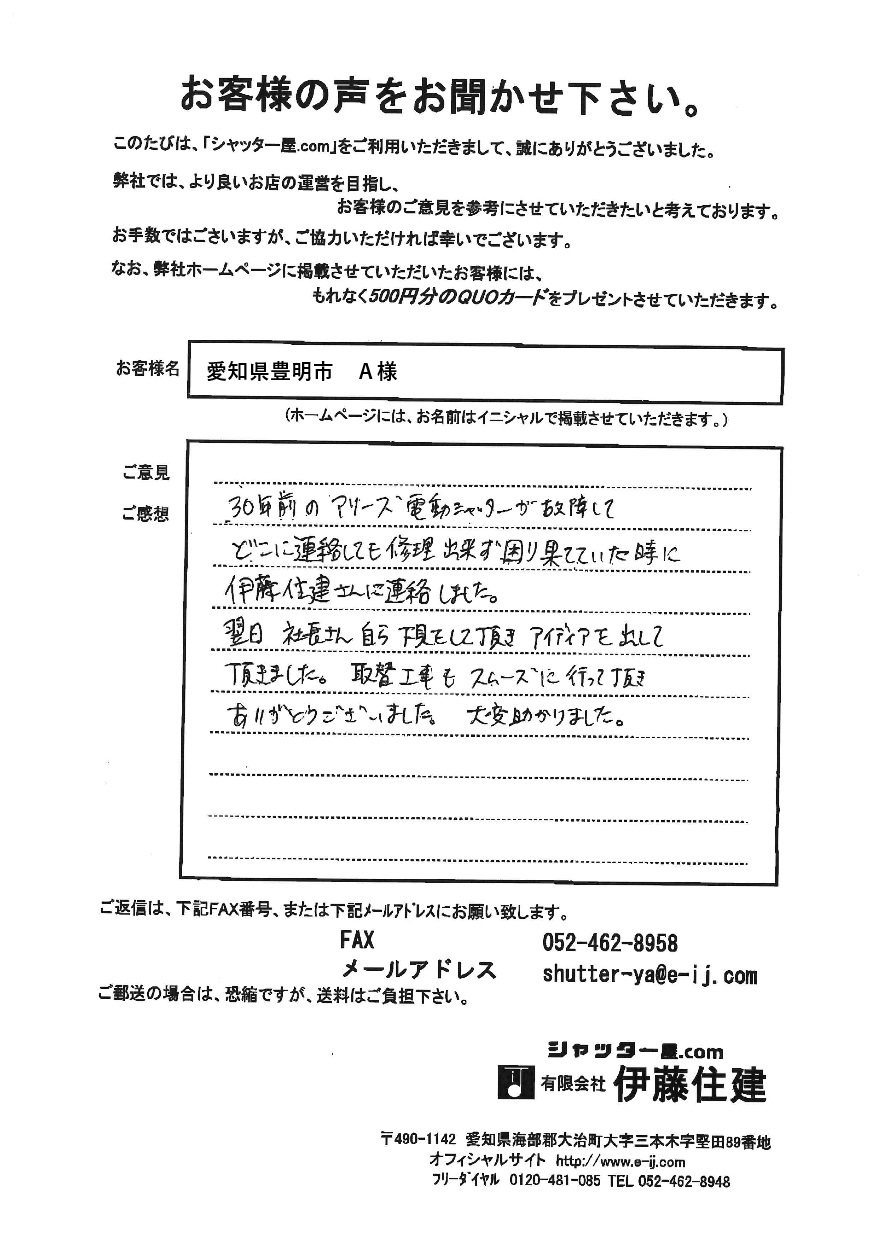 お客様の声をお聞かせ下さい。
このたびは、「シャッター屋.com」をご利用いただきまして、誠にありがとうございました。
弊社では、より良いお店の運営を目指し、
お客様のご意見を参考にさせていただきたいと考えております。
お手数ではございますが、ご協力いただければ幸いでございます。
なお、弊社ホームページに掲載させていただいたお客様には、
もれなく500円分のQUOカードをプレゼントさせていただきます。
お客様名 愛知県豊明市 A様
(ホームページには、お名前はイニシャルで掲載させていただきます。)
ご意見
ご感想
30年前のアリーズ電動シャッターが故障して
どこに連絡しても修理出来ず困り果てていた時に
伊藤住建さんに連絡しました。
翌日 社長さん自ら下見をして頂きアイディアを出して
頂きました。取替工事もスムーズに行って頂き
ありがとうございました。大変助かりました。
ご返信は、下記FAX番号、または下記メールアドレスにお願い致します。
FAX 052-462-8958
メールアドレス shutter-ya@e-ij.com
ご郵送の場合は、恐縮ですが、送料はご負担下さい。
シャッター屋.com
有限会社 伊藤住建
〒490-1142 愛知県海部郡大治町大字三本木字堅田89番地
オフィシャルサイト http://www.e-ij.com
フリーダイヤル 0120-481-085 TEL 052-462-8948